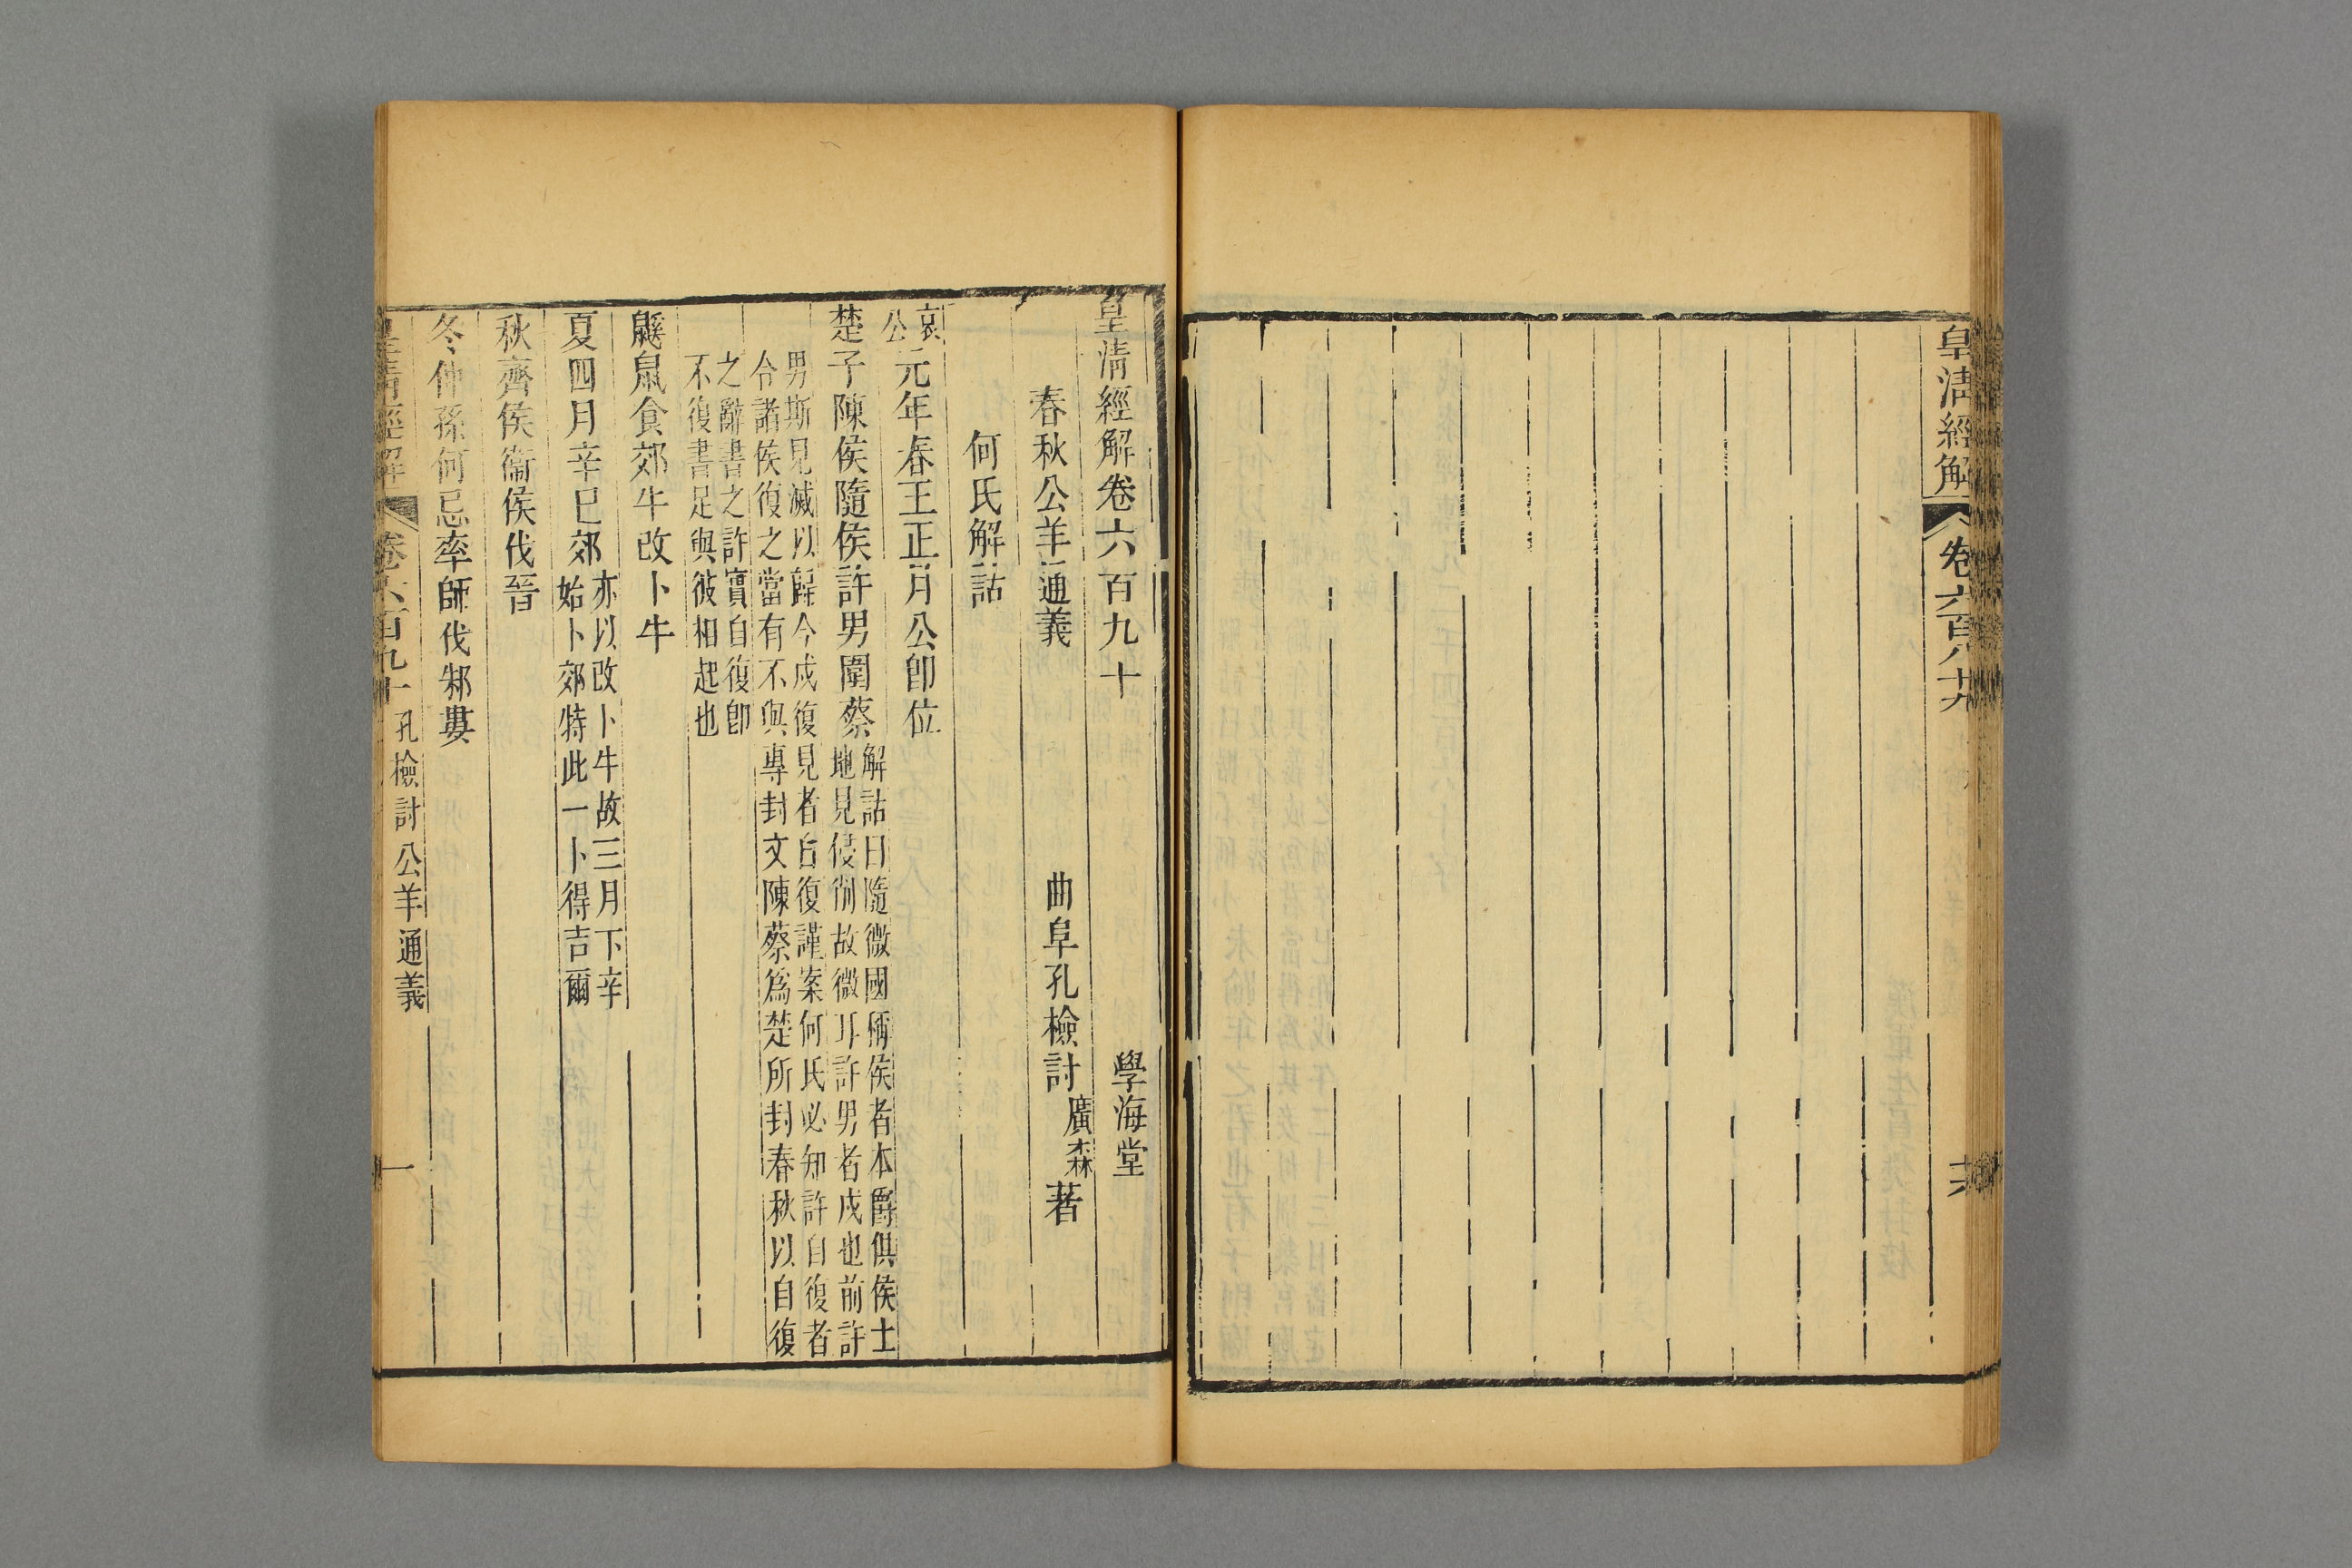 皇清經解
卷六百八十九
皇清經解卷六百九十
學海堂
春秋公羊通義
曲阜孔檢討廣森著
何氏解詁
哀公元年春王正月公卽位
楚子陳侯隨侯許男圍蔡
解詁曰隨微國稱侯者本爵俱侯土
地見侵削故微爾許男者戌也前許
男斯見滅以歸今戌復見者自復謹案何氏必知許自復者
令諸侯復之當有不與專封文陳蔡爲楚所封春秋以自復
之辭書之許實自復卽
不復書足與彼相起也
鼷鼠食郊牛改卜牛
夏四月辛巳郊
亦以改卜牛故三月下辛
始卜郊特此一卜得吉爾
秋齊侯衞侯伐晉
冬仲孫何忌率師伐邾婁
皇清經解
卷六百九十
孔檢討公羊通義
一